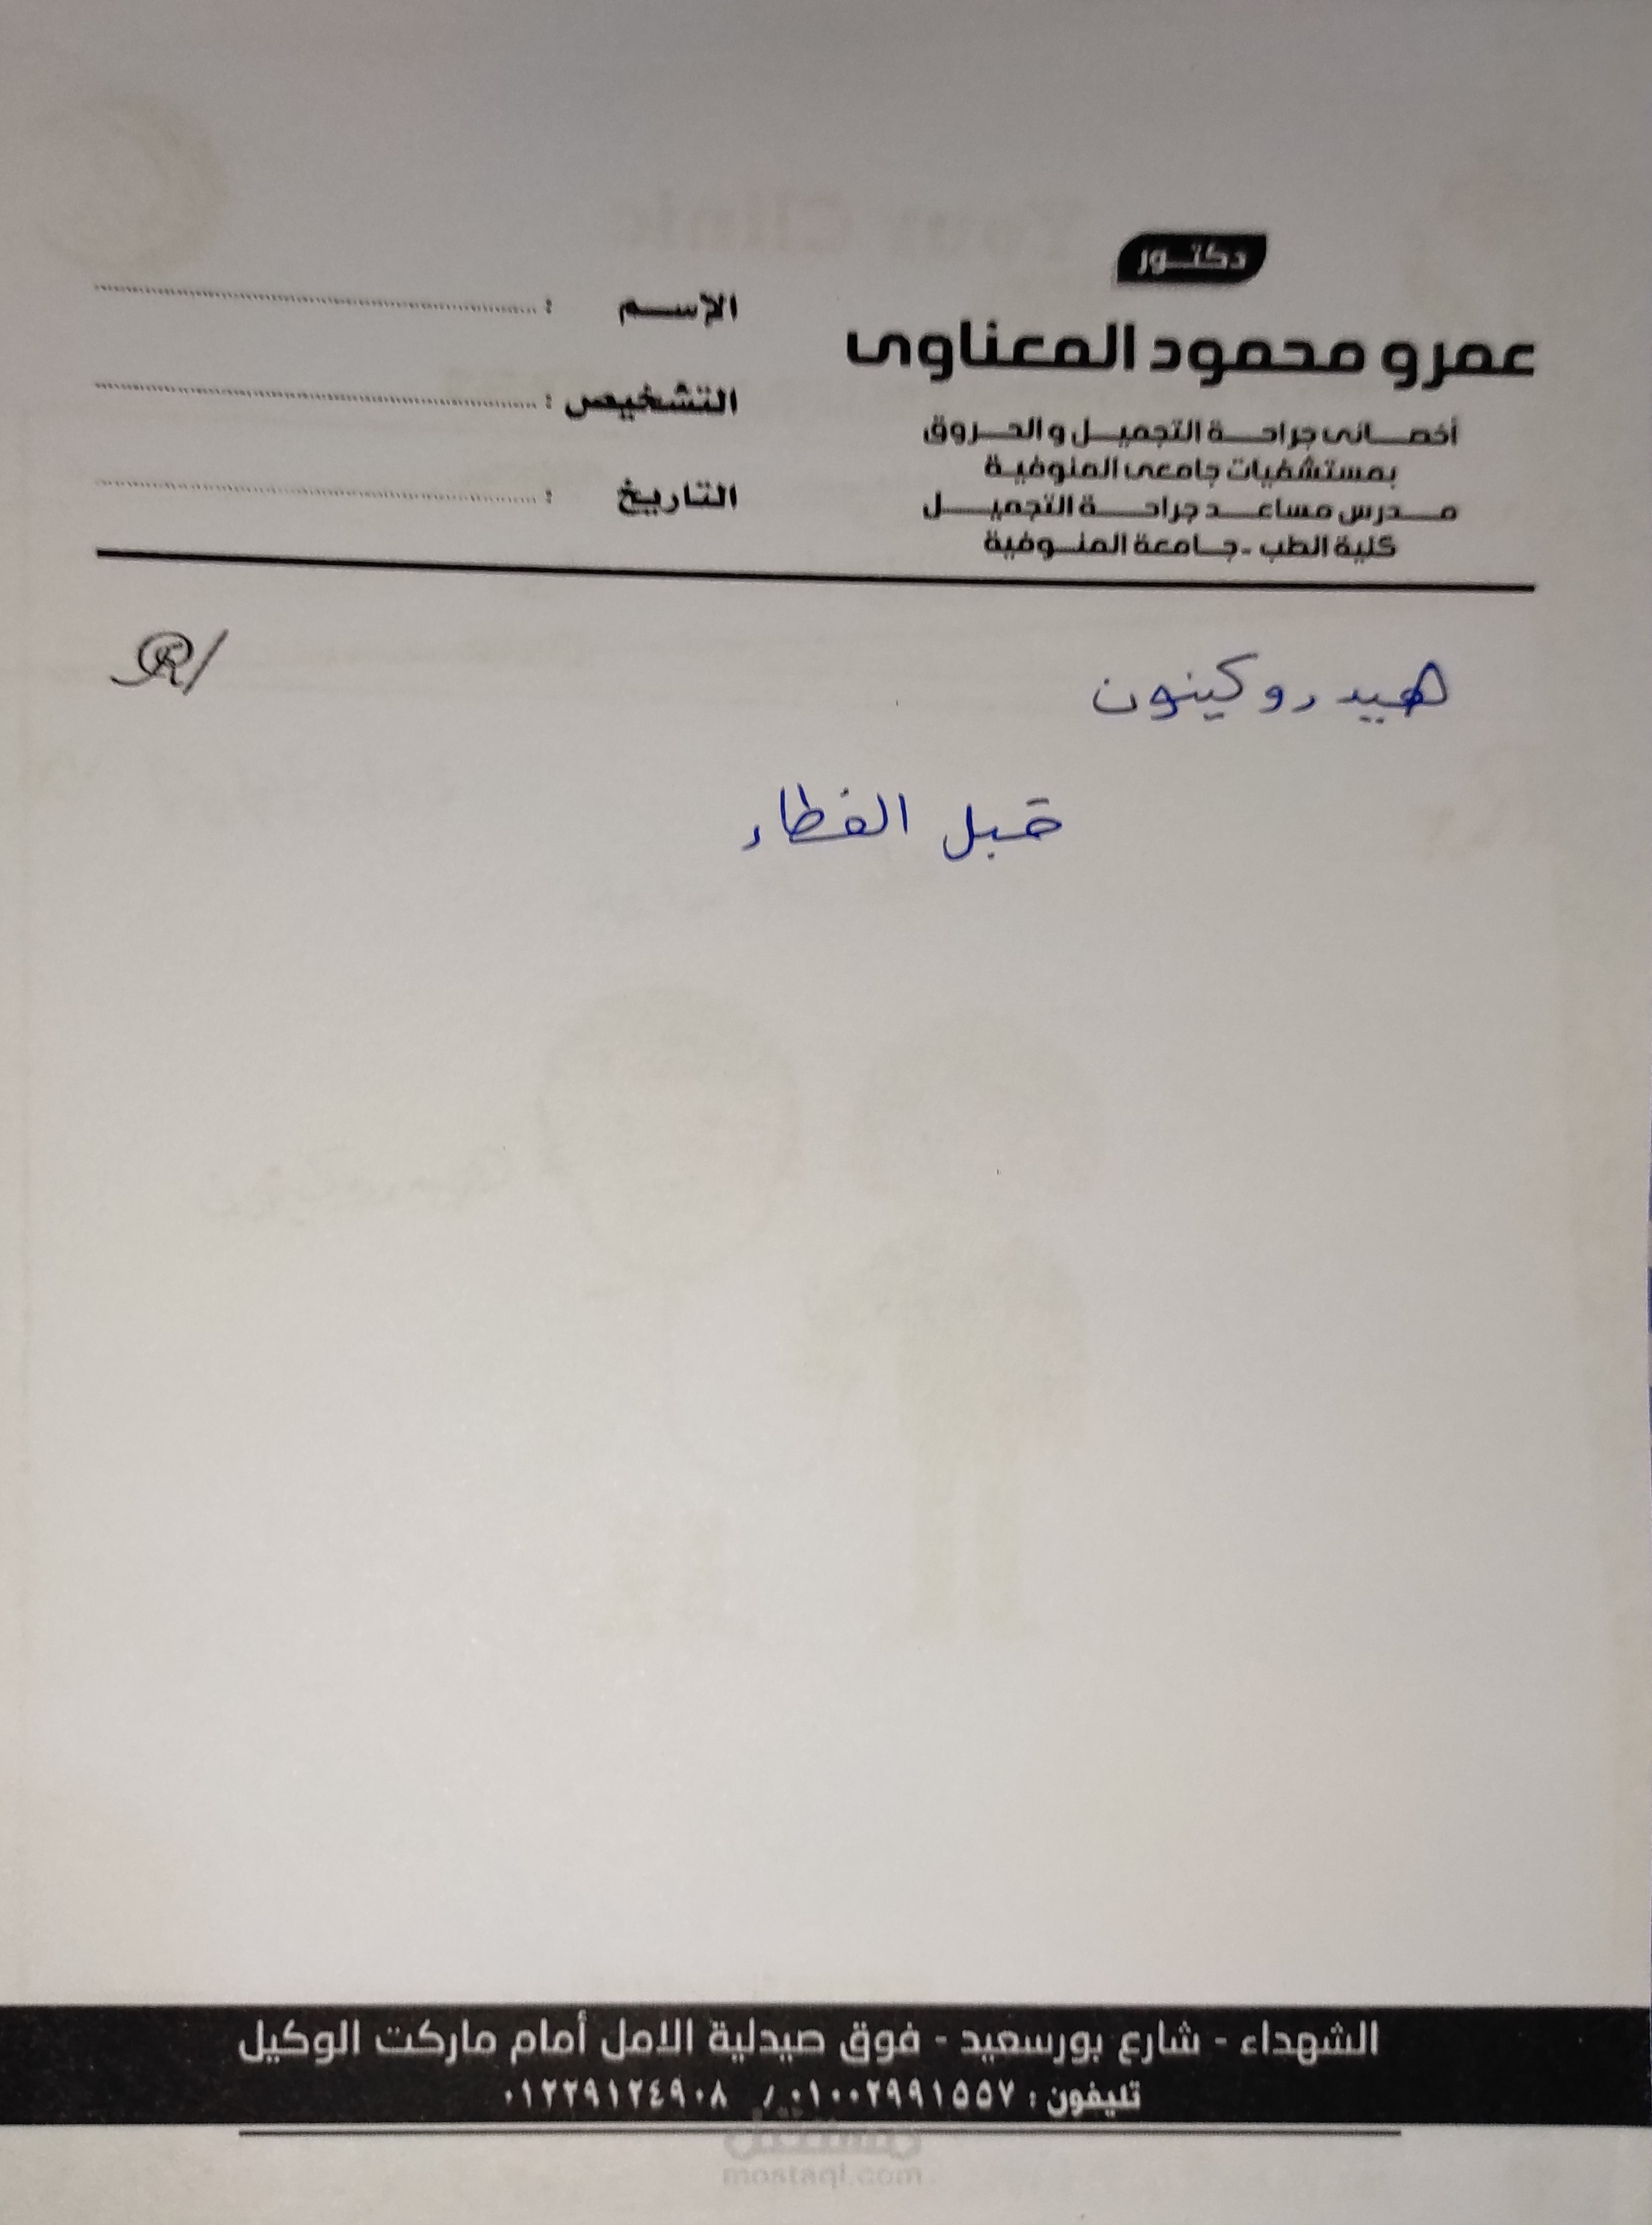 دكتور
عمرو محمود المعناوى
أخصائى جراحة التجميل والحروق
بمستشفيات جامعى المنوفية
مدرس مساعد جراحة التجميل
كلية الطب - جامعة المنوفية
الإسم :
التشخيص :
التاريخ :
R/
هيدروكينون
قبل الغطاء
الشهداء - شارع بورسعيد - فوق صيدلية الامل أمام ماركت الوكيل
تليفون : ٠١٠٠٢٩٩١٥٥٧ / ٠١٢٢٩١٢٤٩٠٨
مستقل
mostaql.com